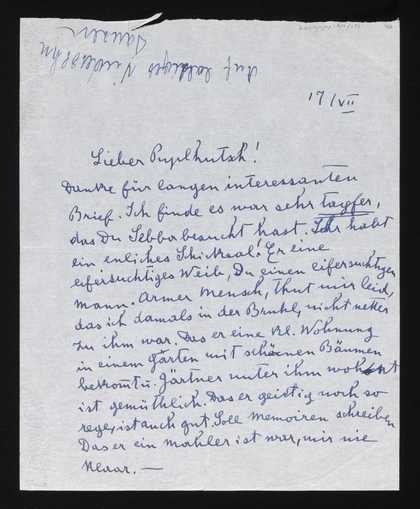 Auf baldiges Wiedersehn
17/VII
Lieber Puplhutsh!
Danke für langen interessanten
Brief. Ich finde es war sehr tapfer,
das Du Sebba besucht hast. Ihr habt
ein enliches Schicksaal! Er eine
eifersuchtiges Weib, Du einen eifersuchtigen
Mann. Armer Mensch, thut mir leid,
das ich damals in der nicht netter
zu ihm war. Das er eine Kl. Wohnung
in einem Gärten mit schönen Bäumen
bekomt u. Gärtner unter ihm wohnt
ist gemüthlich. Das er geistig noch so
rege, ist auch gut. Soll Memoiren schreiben
Das er ein Mahler ist war, mir nie
klaar. —